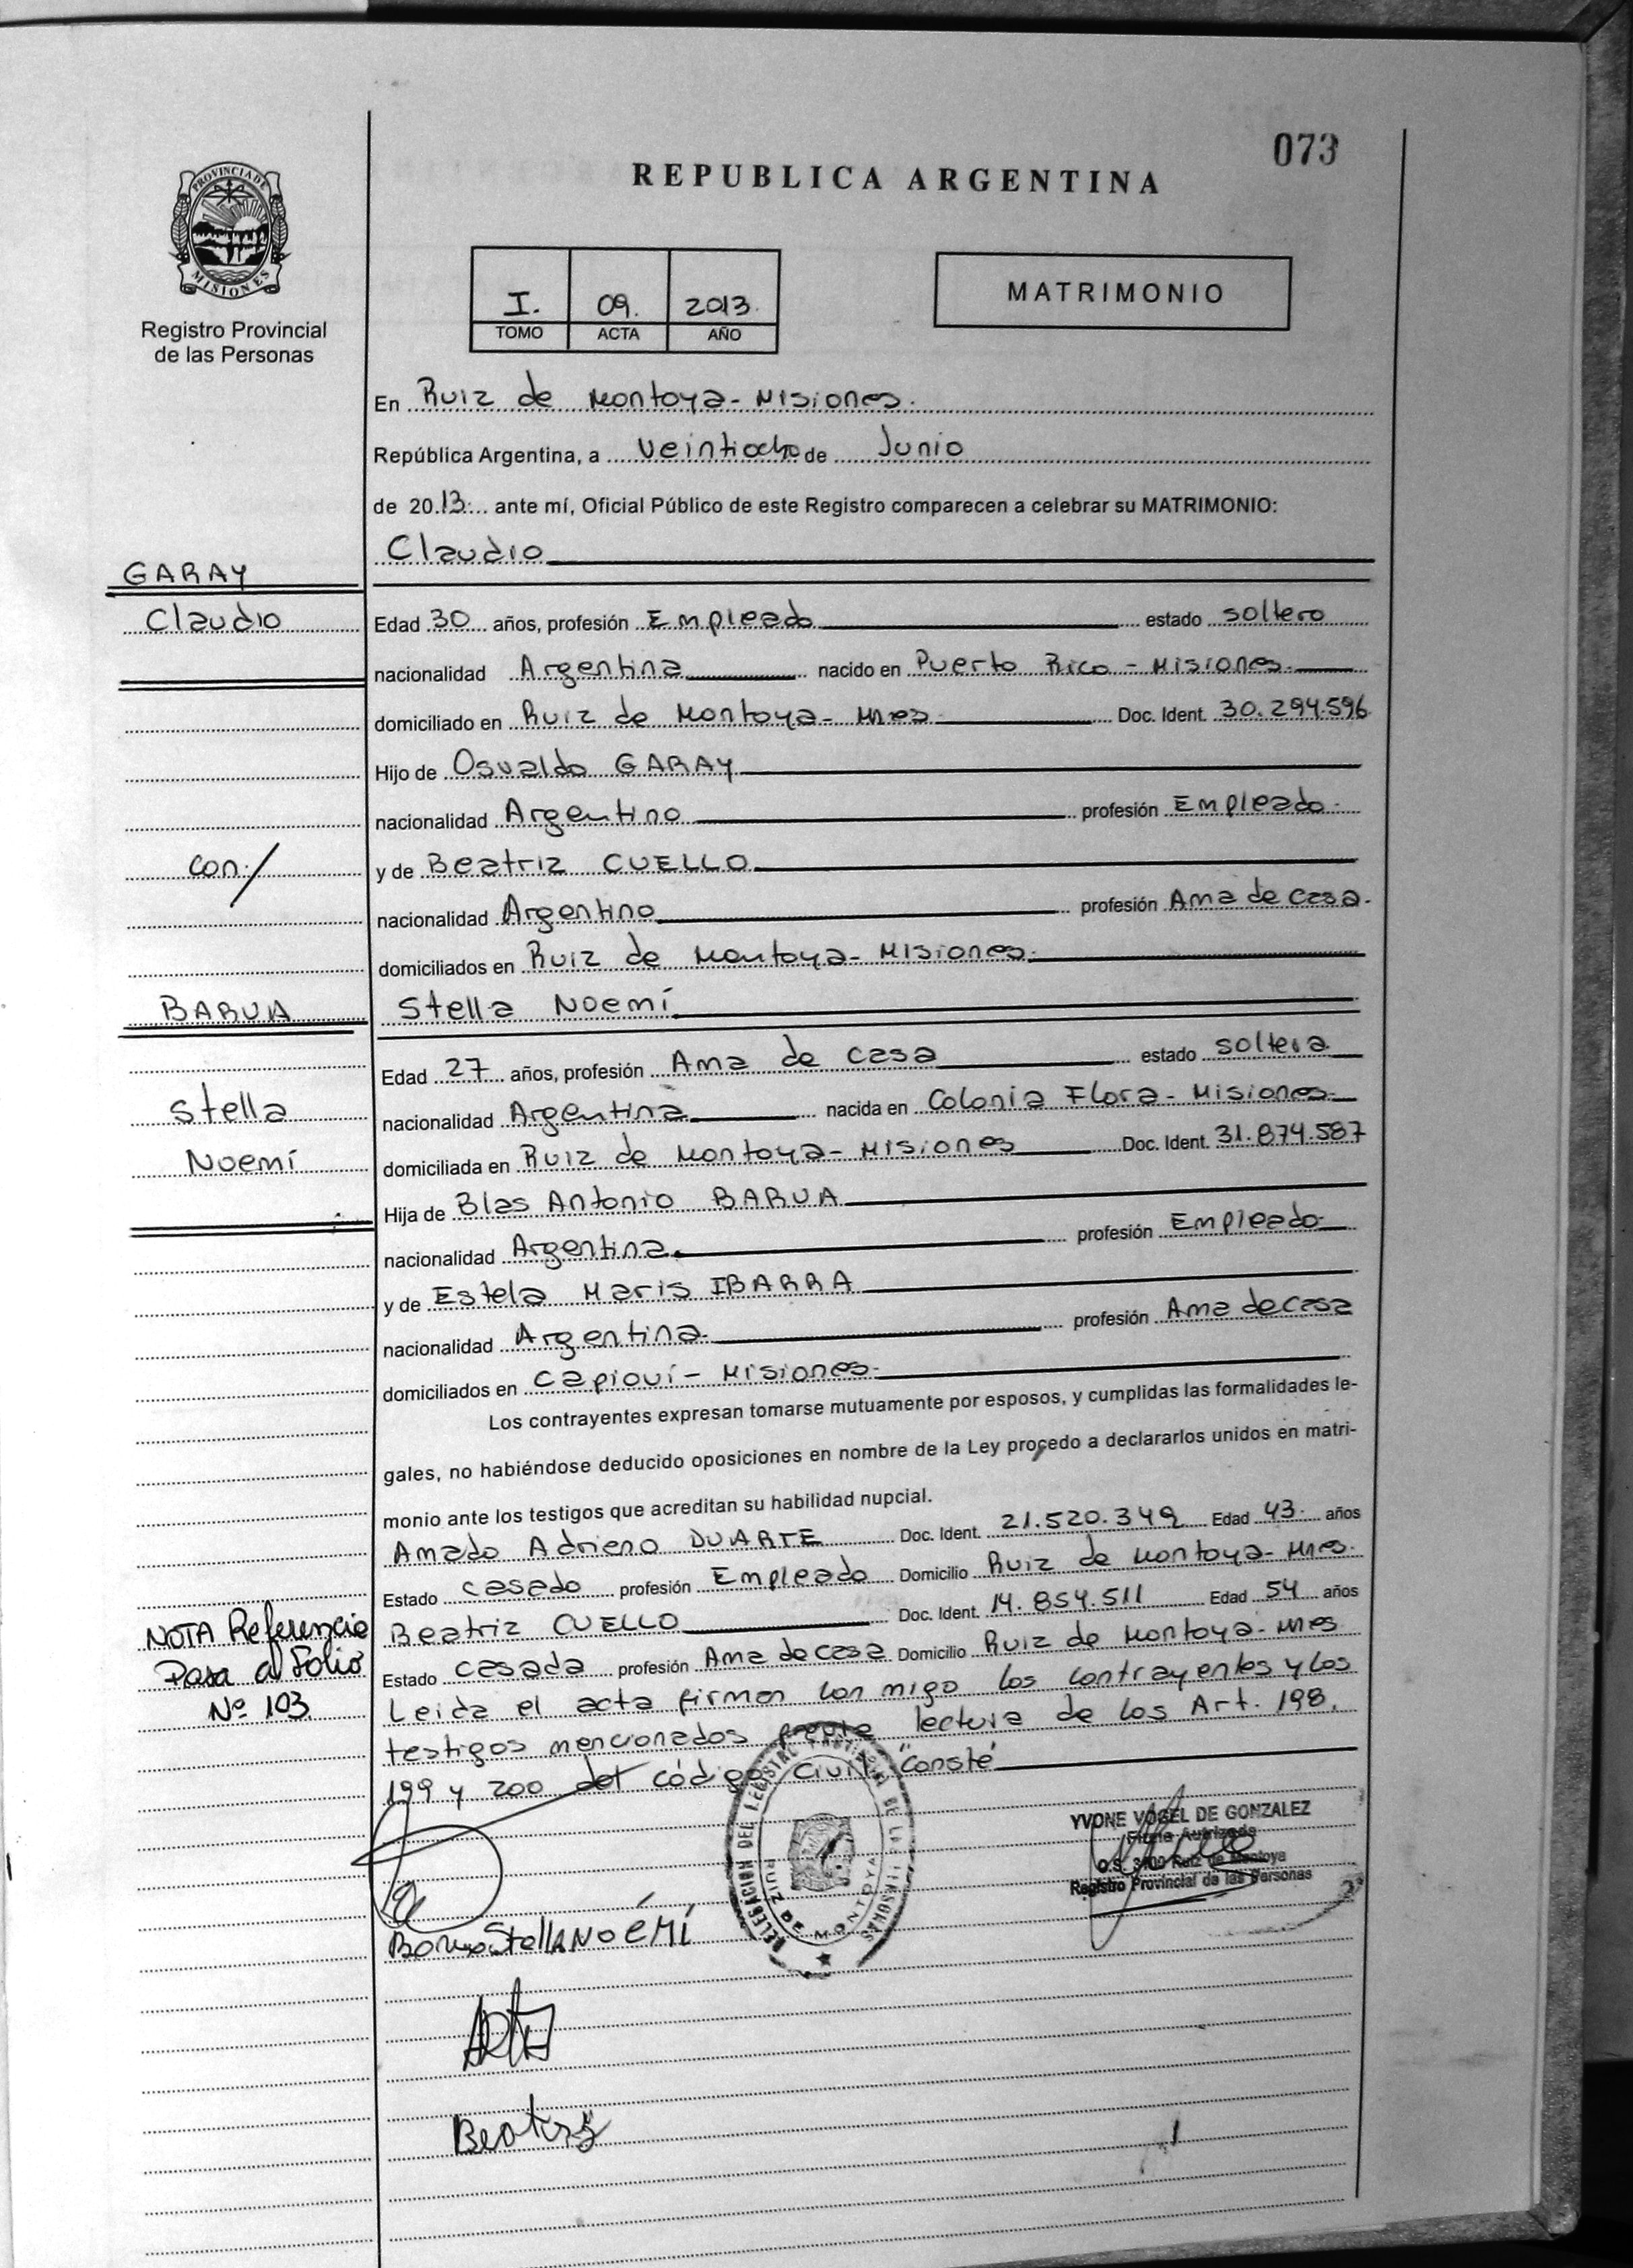 073
REPUBLICA ARGENTINA
PROVINCIA DE
MISIONES
Registro Provincial
de las Personas
I. 09. 2013.
TOMO ACTA AÑO
MATRIMONIO
En Ruiz de Montoya - Misiones.
República Argentina, a veintiocho de Junio
de 2013. ante mí, Oficial Público de este Registro comparecen a celebrar su MATRIMONIO:
Claudio
GARAY
Claudio
Edad 30 años, profesión Empleado estado soltero
nacionalidad Argentina nacido en Puerto Rico - Misiones.
domiciliado en Ruiz de Montoya - Mnes. Doc. Ident. 30.294.596
Hijo de Osvaldo GARAY
nacionalidad Argentino profesión Empleado.
con/
y de Beatriz CUELLO
nacionalidad Argentino profesión Ama de casa.
domiciliados en Ruiz de Montoya - Misiones.
BARUA
Stella Noemí
Edad 27 años, profesión Ama de casa estado soltera
Stella
nacionalidad Argentina nacida en Colonia Flora - Misiones.
Noemí
domiciliada en Ruiz de Montoya - Misiones Doc. Ident. 31.874.587
Hija de Blas Antonio BARUA
nacionalidad Argentina profesión Empleado
y de Estela Maris IBARRA
nacionalidad Argentina profesión Ama de casa
domiciliados en Capioví - Misiones.
Los contrayentes expresan tomarse mutuamente por esposos, y cumplidas las formalidades le-
gales, no habiéndose deducido oposiciones en nombre de la Ley procedo a declararlos unidos en matri-
monio ante los testigos que acreditan su habilidad nupcial.
Amado Adrieno DUARTE Doc. Ident. 21.520.349 Edad 43. años
Estado casado profesión Empleado Domicilio Ruiz de Montoya - Mnes.
Beatriz CUELLO Doc. Ident. 14.854.511 Edad 54 años
Estado casada profesión Ama de casa Domicilio Ruiz de Montoya - Mnes
NOTA Referencia
Pasa al Folio
Nº 103
Leida el acta firman con migo los contrayentes y los
testigos mencionados previa lectura de los Art. 198,
199 y 200 del código Civil "Conste"
YVONE VOGEL DE GONZALEZ
Firma Autorizada
O.S. 3109 Ruiz de Montoya
Registro Provincial de las Personas
DELEGACION DEL REGISTRO PROVINCIAL DE LAS PERSONAS
RUIZ DE MONTOYA
Stella NOÉMÍ
Beatriz